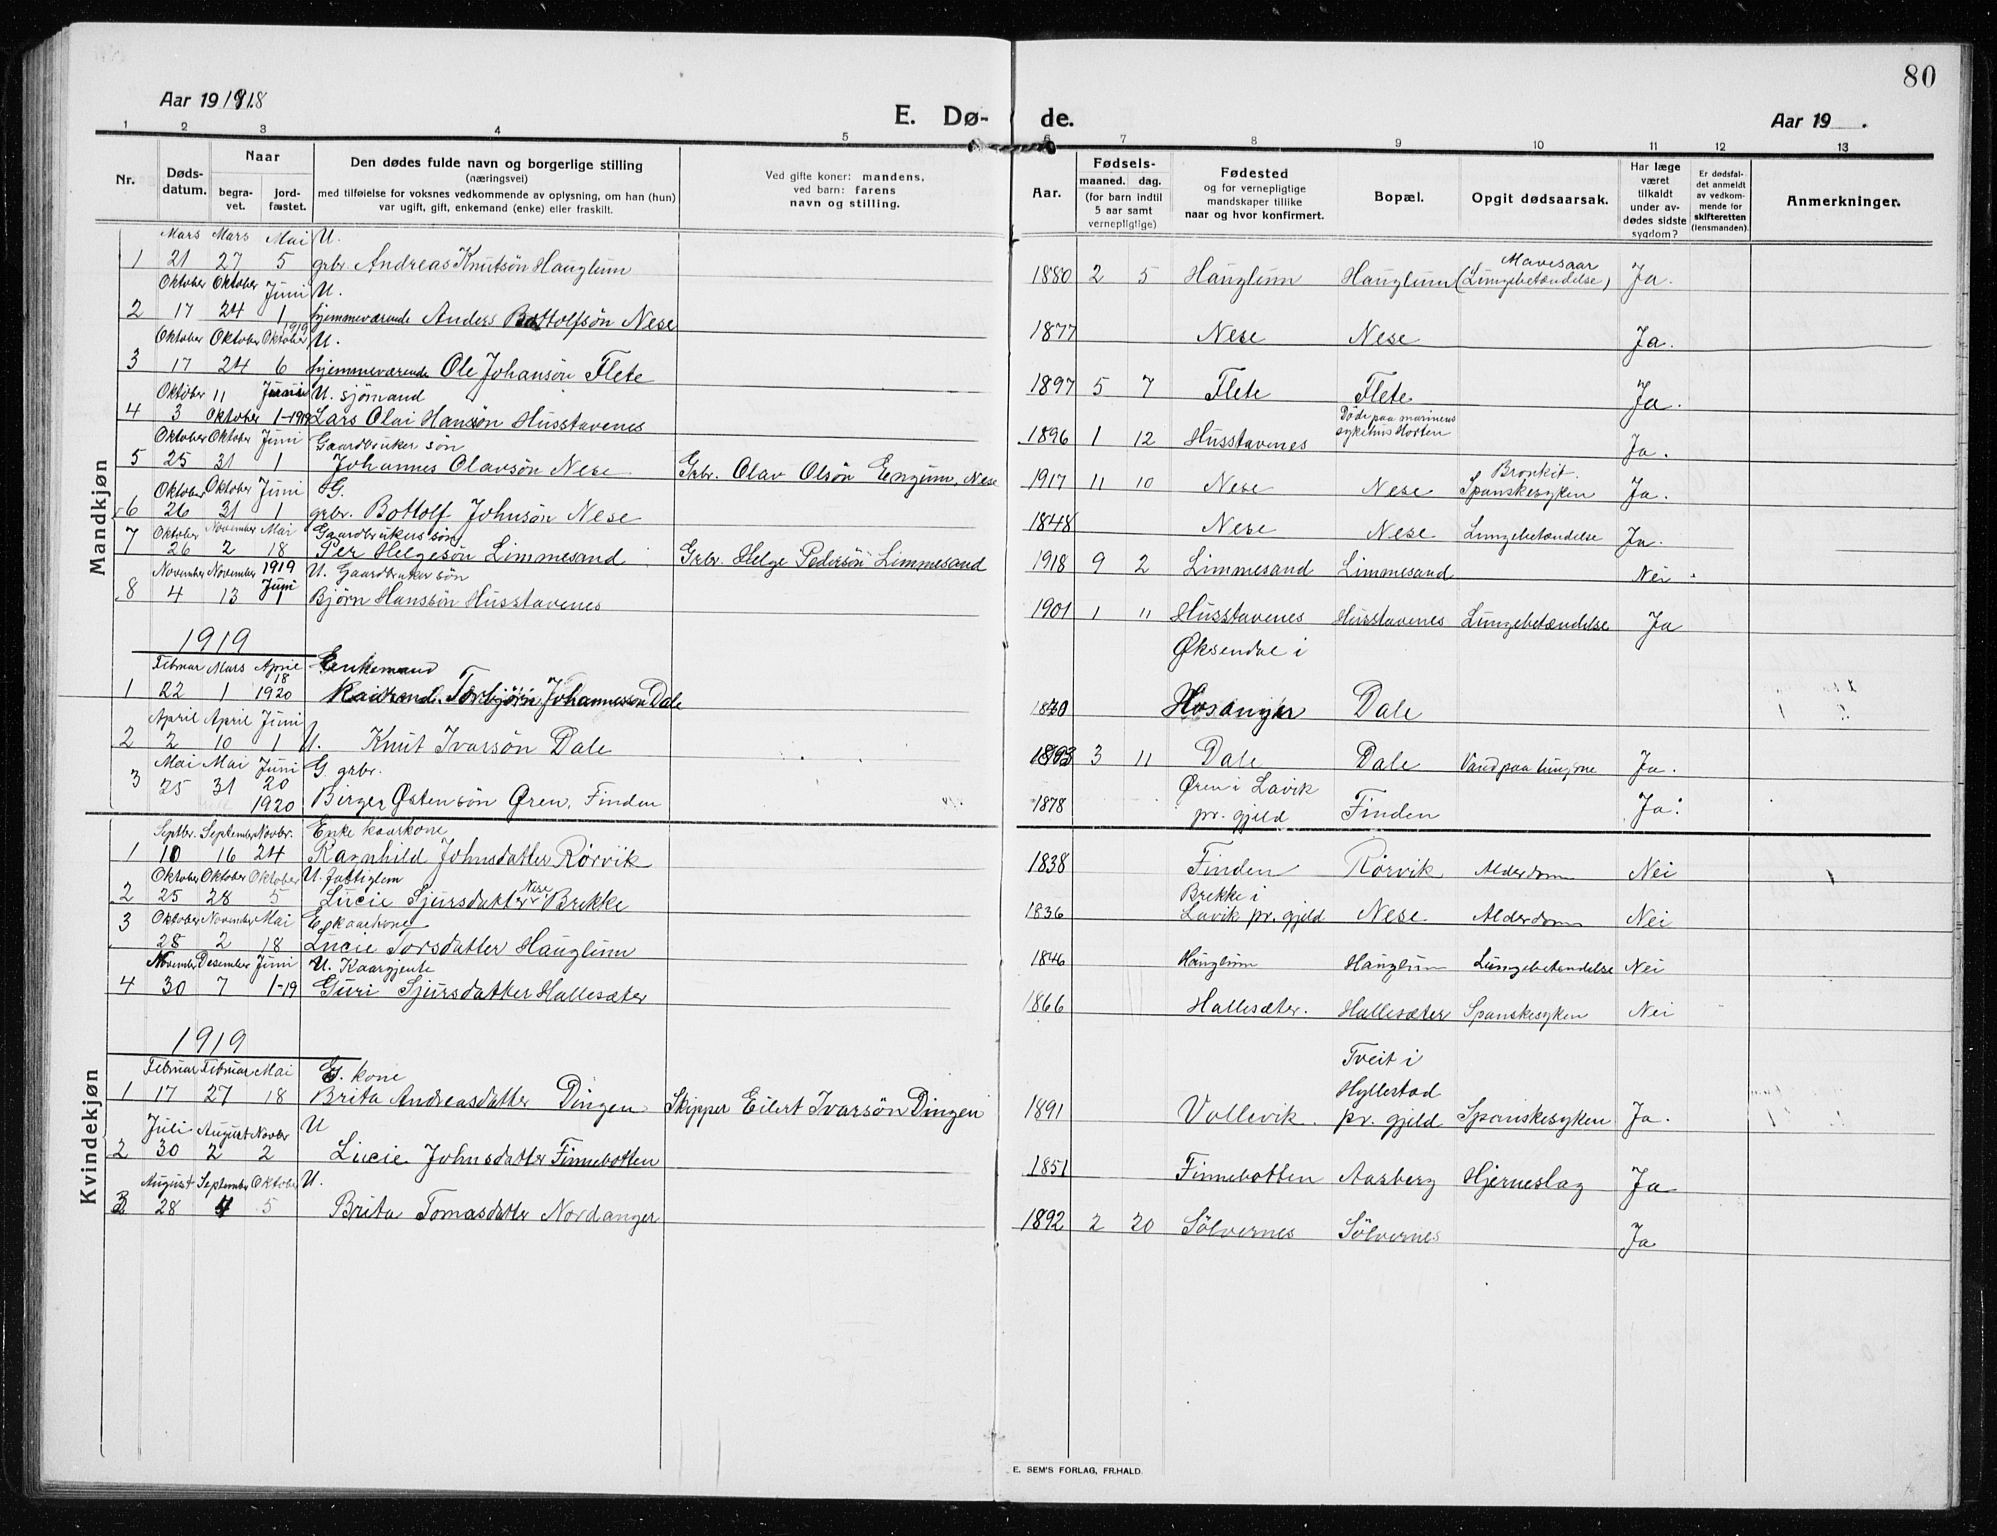 80
Aar 1918
E. Dø-
de.
Aar 19   .
1 2 3 4 5 6 7 8 9 10 11 12 13
Nr. Døds-datum. Naar begra-vet. jord-fæstet. Den dødes fulde navn og borgerlige stilling (næringsvei) med tilføielse for voksnes vedkommende av oplysning, om han (hun) var ugift, gift, enkemand (enke) eller fraskilt. Ved gifte koner: mandens, ved barn: farens navn og stilling. Aar. Fødsels- maaned. dag. (for barn indtil 5 aar samt vernepligtige) Fødested og for vernepligtige mandskaper tillike naar og hvor konfirmert. Bopæl. Opgit dødsaarsak. Har læge været tilkaldt under av-dødes sidste sygdom? Er dødsfal-det anmeldt av vedkom-mende for skifteretten (lensmanden). Anmerkninger.
Mandkjøn
Mars Mars Mai U. Mavesaar
1 21 27 5 grbr. Andreas Knutsøn Hauglum 1880 2 5 Hauglum Hauglum (Lungebetændelse) Ja.
Oktober Oktober Juni U.
2 17 24 1 hjemmeværende Anders Bottolfsøn Nese 1877 Nese Nese Ja.
Oktober Oktober 1919 Oktober U.
3 17 24 6 hjemmeværende Ole Johansøn Flete 1897 5 7 Flete Flete Ja.
Oktober 11 Juni U. sjømand Døde paa marinens
4 3 Oktober 1-1919 Lars Olai Hansøn Husstavenes 1896 1 12 Husstavenes sykehus Horten Ja.
Oktober Oktober Juni Gaardbruker søn Bronkit.
5 25 31 1 Johannes Olavsøn Nese Grbr. Olav Olsøn Engum, Nese 1917 11 10 Nese Nese Spanskesyken Ja.
Oktober Oktober Juni G.
6 26 31 1 grbr. Bottolf Johnsøn Nese 1848 Nese Nese Lungebetændelse Ja.
Oktober November Mai Gaardbrukers søn
7 26 2 18 Per Helgesøn Limmesand Grbr. Helge Pedersøn Limmesand 1918 9 2 Limmesand Limmesand Nei.
November November 1919 Juni U. Gaardbruker søn
8 4 13 1 Bjørn Hanssøn Husstavenes 1901 1 11 Husstavenes Husstavenes Lungebetændelse Ja
1919
Februar Mars April 18 Enkemand Øksendal i
1 22 1 1920 Torbjørn Johannessøn Dale Hosanger Dale
April April Juni
2 2 10 1 U. Knut Ivarsøn Dale 3 11 Dale Dale Vand paa lungene Ja.
Mai Mai Juni G. grbr. Øren i Lavik
3 25 31 20 1920 Birger Østensøn Øren, Finden 1878 pr. gjeld Finden Ja.
Kvindekjøn
Septbr. September Novbr. Enke kaarkone
1 10 16 24 Ragnhild Johnsdatter Rørvik 1838 Finden Rørvik Alderdom Nei
Oktober Oktober Oktober U. fattiglem Brekke i
2 25 28 5 Lucie Sjursdatter Nese Brekke 1836 Lavik pr. gjeld Nese Alderdom Nei
Oktober November Mai E. kaarkone
3 28 2 18 Lucie Torsdatter Hauglum 1846 Hauglum Hauglum Lungebetændelse Nei
November Desember Juni U. Kaargjente
4 30 7 1-19 Guri Sjursdatter Hallesæter 1866 Hallesæter. Hallesæter Spanskesyken Nei
1919
Februar Februar Mai G. kone Tveit i Hyllestad
1 17 27 18 Brita Andreasdatter Dingen Skipper Eilert Ivarsøn Dingen 1891 Vollevik pr. gjeld Spanskesyken Ja.
Juli August Novbr U
2 30 2 2 Lucie Johnsdatter Finnebotten 1851 Finnebotten Aarberg Hjerneslag Ja
August September Oktober U.
3 28 4 5 Brita Tomasdatter Nordanger 1892 2 20 Sölvernes Sölvernes Ja
E. SEM'S FORLAG, FR.HALD.